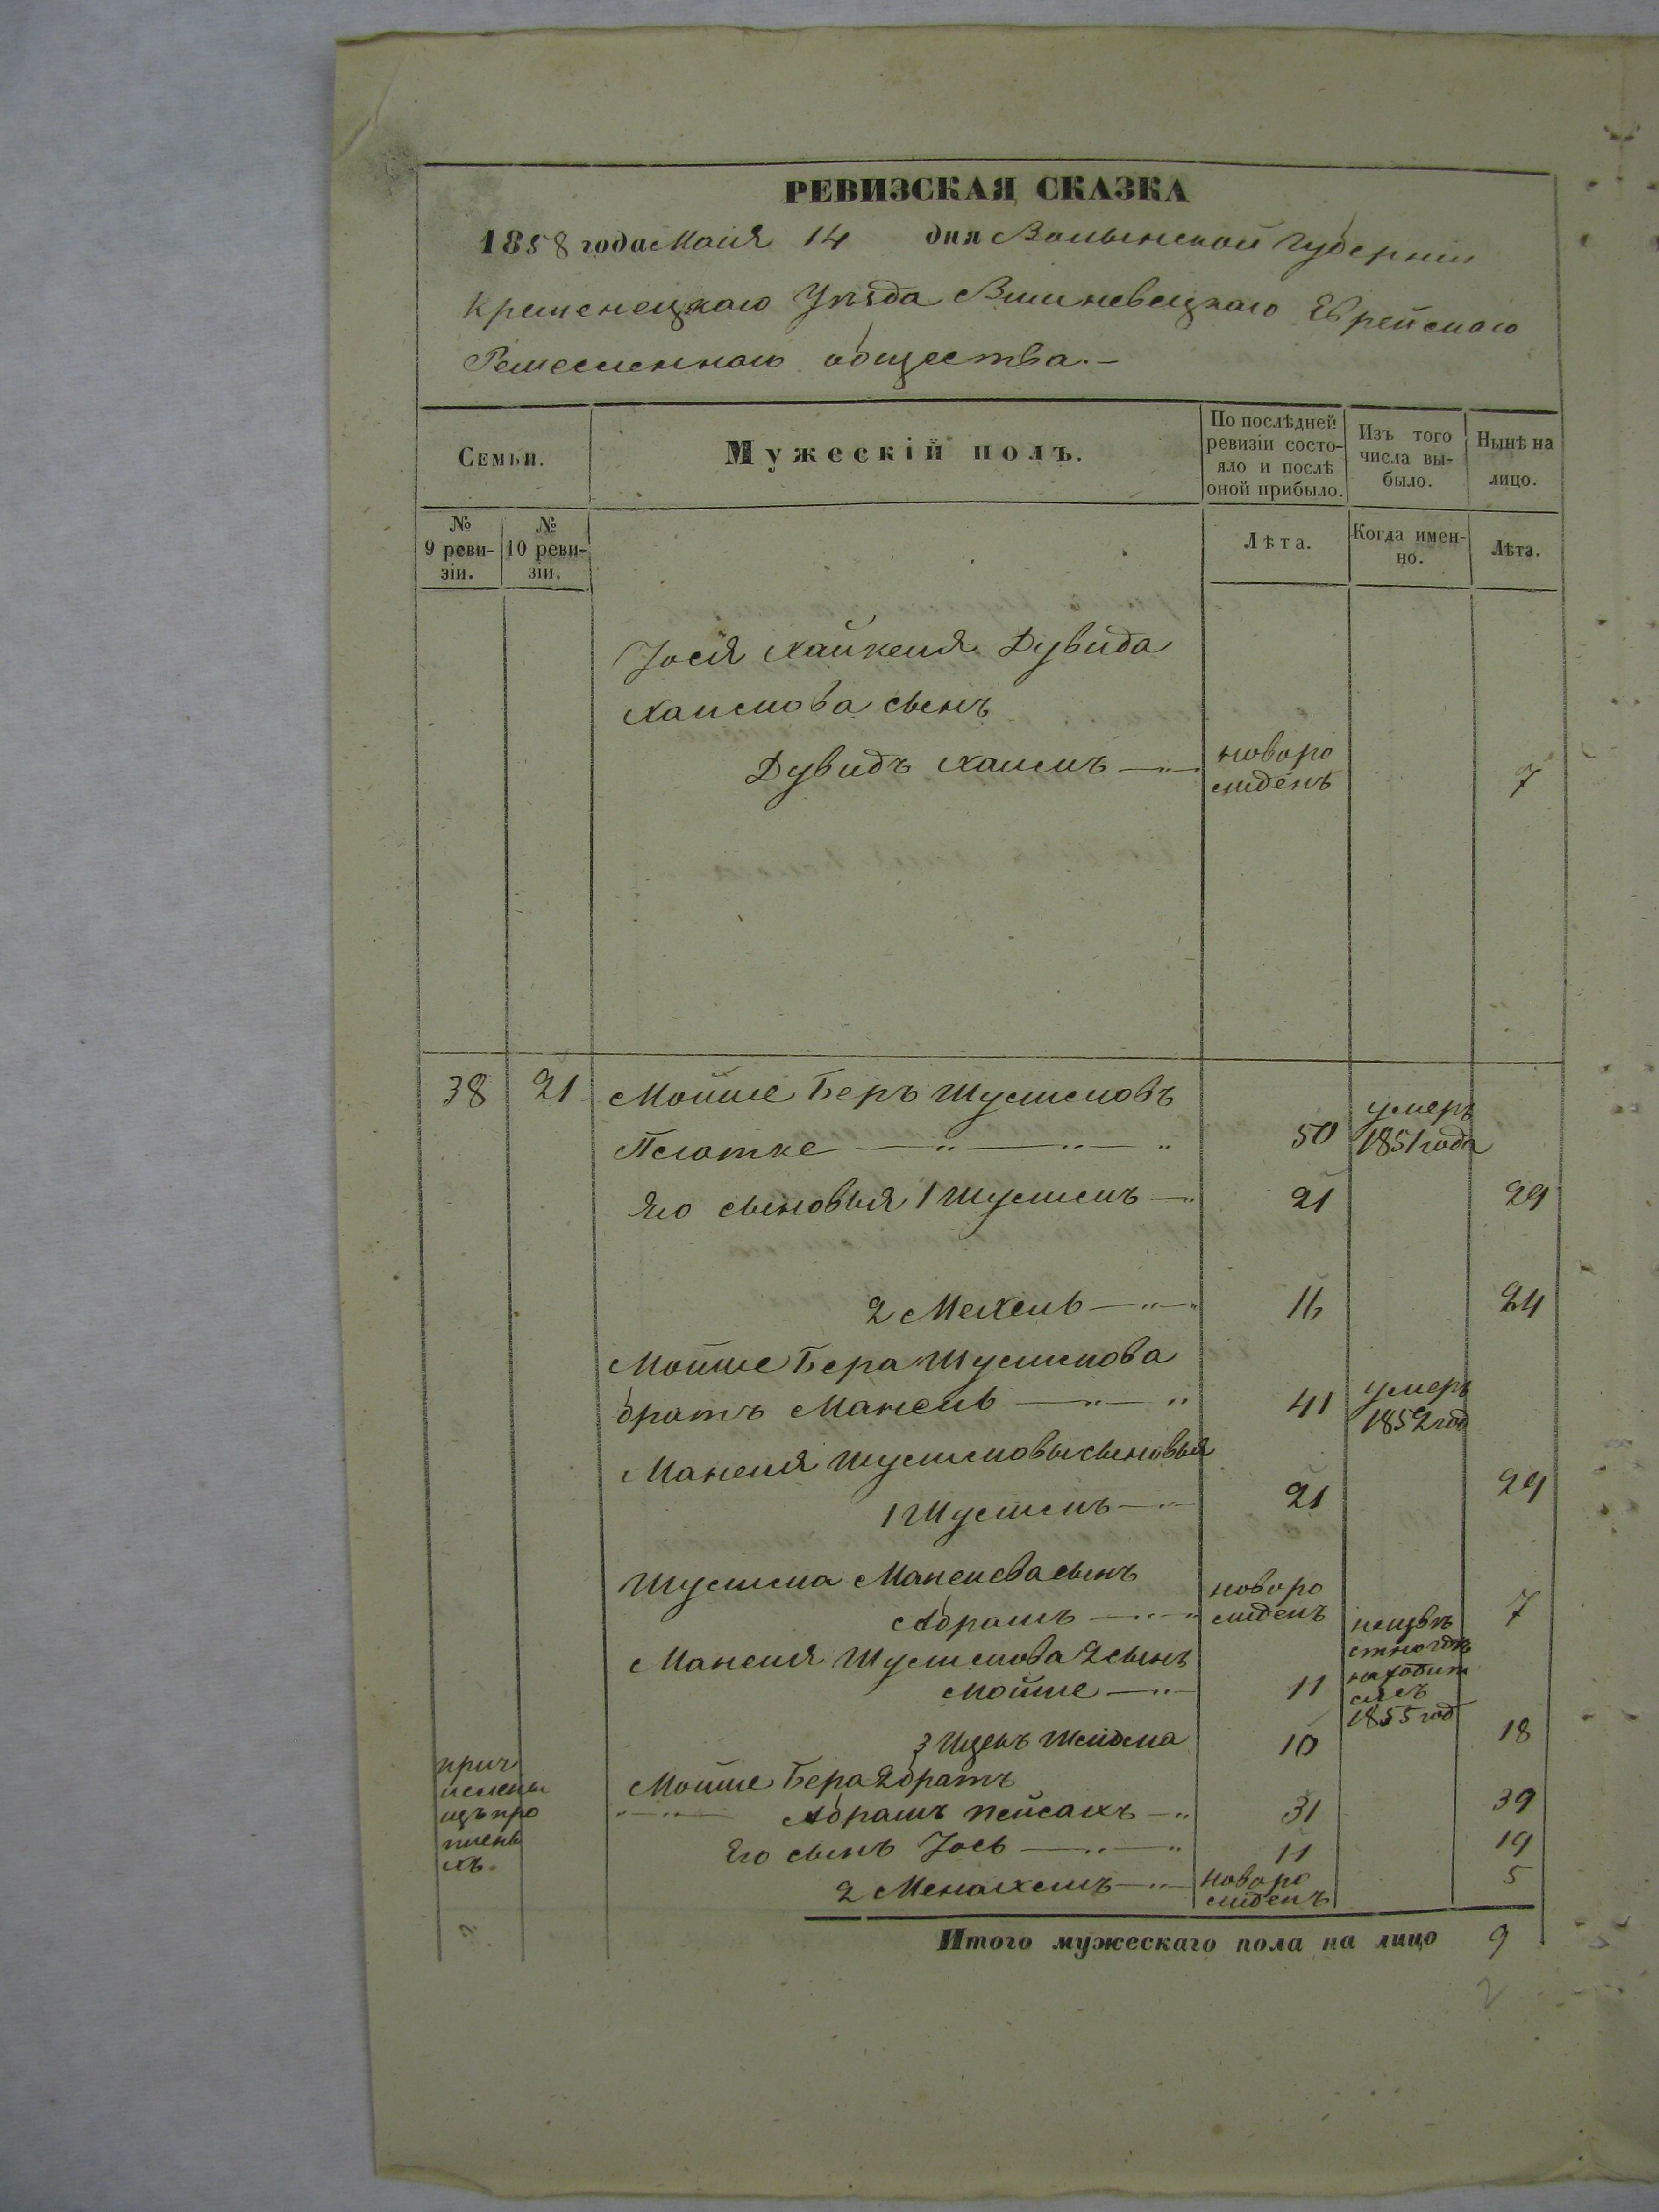 РЕВИЗСКАЯ СКАЗКА
1858 года Маія 14 дня Волынской Губерніи
Кременецкаго Уѣзда Вишневецкаго Еврейскаго
Ремесленнаго общества.-
Семьи.
Мужескій полъ.
По послѣдней
ревизіи состо-
яло и послѣ
оной прибыло.
Изъ того
числа вы-
было.
Нынѣ на
лицо.
№
9 реви-
зіи.
№
10 реви-
зіи.
Лѣта.
Когда имен-
но.
Лѣта.
Іося Хайкеля Дувида
Хаимова сынъ
Дувидъ Хаимъ новоро
жденъ 7
38 21 Мойше Беръ Шулимовъ
50 умеръ
1851 года
Яго сыновья 1 Шулимъ 21 29
2 Мехель 16 24
Мойше Бера Шулимова
братъ Манель 41 умеръ
1852 год
Манеля Шулимовы сыновья
1 Шулимъ 21 29
Шулима Манелева сынъ
Абрамъ новоро
жденъ 7
Манеля Шулимова 2 сынъ
Мойше 11 неизвѣ
стно гдѣ
находит
ся съ
1855 год
3 Ицекъ 10 18
Мойше Бера 2 братъ
Абрамъ Пейсахъ 31 39
Его сынъ Іось 11 19
2 Менахемъ новоро
жденъ 5
прич
ислены
изъ про
пшены
хъ.
Итого мужескаго пола на лицо 9